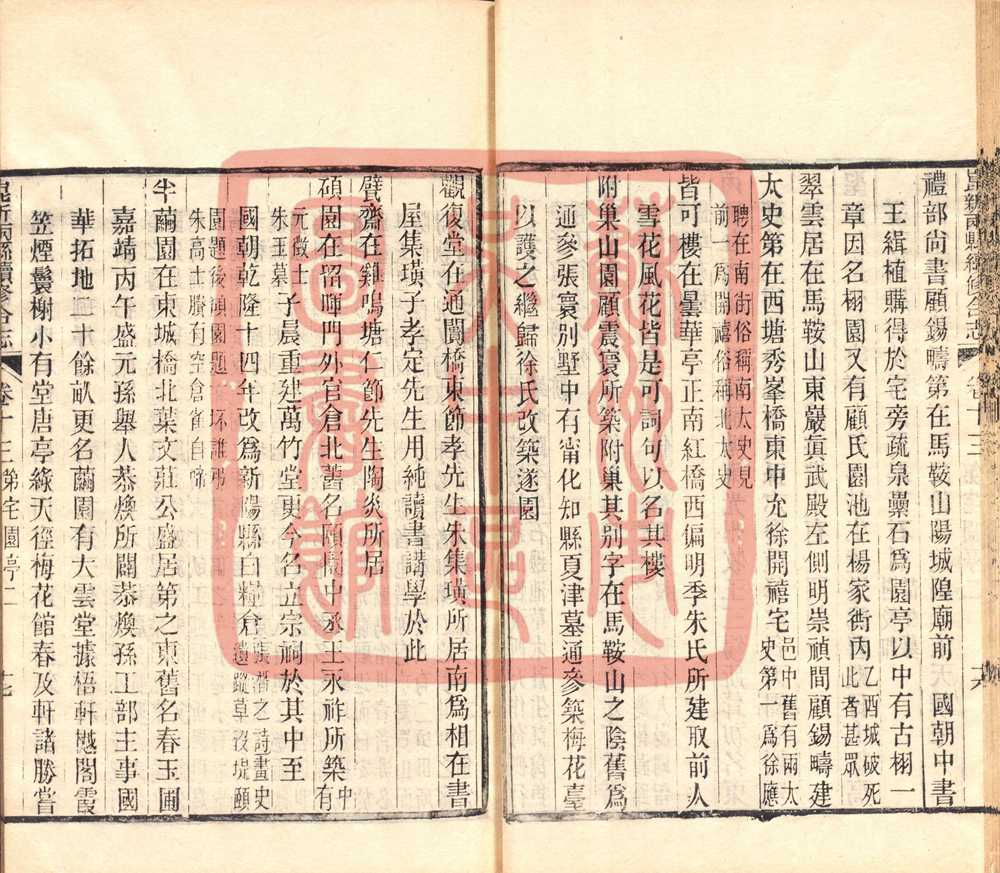 禮部尚書顧錫疇第在馬鞍山陽城隍廟前 國朝中書
王緝植購得於宅旁疏泉壘石爲園亭以中有古栩一
章因名栩園又有顧氏園池在楊家衖內乙酉城破死
此者甚眾
翠雲居在馬鞍山東巖真武殿左側明崇禎間顧錫疇建
太史第在西塘秀峯橋東中允徐開禧宅邑中舊有兩太
史第一爲徐應
聘在南街俗稱南太史見
前一爲開禧俗稱北太史
皆可樓在曇華亭正南紅橋西偏明季朱氏所建取前人
雪花風花皆是可詞句以名其樓
附巢山園顧震寰所築附巢其別字在馬鞍山之陰舊爲
通參張寰別墅中有甯化知縣夏津墓通參築梅花臺
以護之繼歸徐氏改築遂園
觀復堂在通闤橋東節孝先生朱集璜所居南爲相在書
屋集璜子孝定先生用純讀書講學於此
甓齋在雞鳴塘仁節先生陶炎所居
碩園在留暉門外官倉北舊名頤園中丞王永祚所築中
有
元徵士
朱玉墓子晨重建萬竹堂更今名立宗祠於其中至
國朝乾隆十四年改爲新陽縣白糧倉張潛之詩畫史
遺蹤草沒堤頤
園題後碩園題 不誰弔
朱高士賸有空倉雀自啼
半繭園在東城橋北葉文莊公盛居第之東舊名春玉圃
嘉靖丙午盛元孫舉人恭煥所闢恭煥孫工部主事國
華拓地 十餘畝更名繭園有大雲堂據梧軒樾閣霞
笠煙鬟榭小有堂唐亭綠天徑梅花館春及軒諸勝嘗
昆新兩縣續修合志 卷十三 第宅園亭二